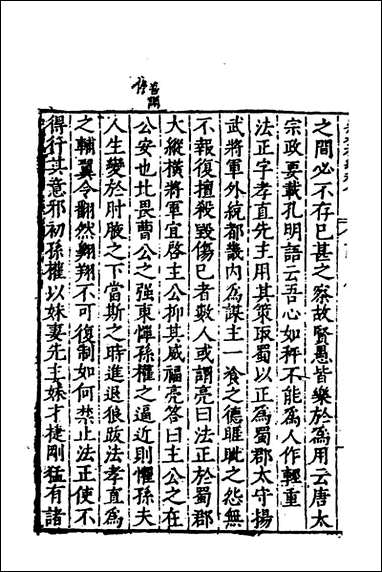 之間必不存已甚之察故賢愚皆樂於為用云唐太
宗政要載孔明語云吾心如秤不能為人作輕重
法正字孝直先主用其策取蜀以正為蜀郡太守揚
武將軍外統都畿內為謀主一飡之德睚眦之怨無
不報復擅殺毀傷已者數人或謂亮曰法正於蜀郡
大縱橫將軍宜啓主公抑其威福亮答曰主公之在
公安也北畏曹公之强東憚孫權之逼近則懼孫夫
人生變於肘腋之下當斯之時進退狼跋法孝直為
之輔翼令翻然翱翔不可復制如何禁止法正使不
得行其意邪初孫權以妹妻先主妹才捷剛猛有諸